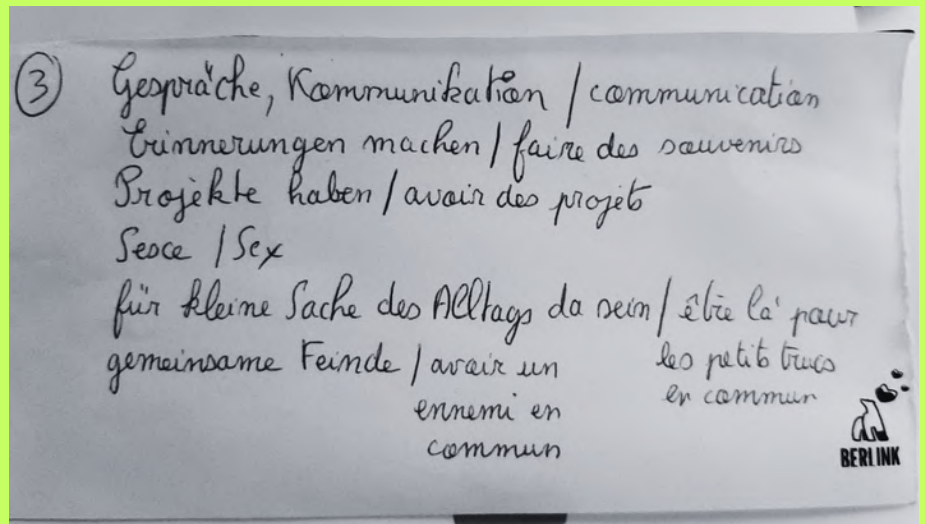 ③ Gespräche, Kommunikation / communication
Erinnerungen machen / faire des souvenirs
Projekte haben / avoir des projets
Sexe / Sex
für kleine Sache des Alltags da sein / être là pour
les petits trucs
en commun
gemeinsame Feinde / avoir un
ennemi en
commun
BERLINK